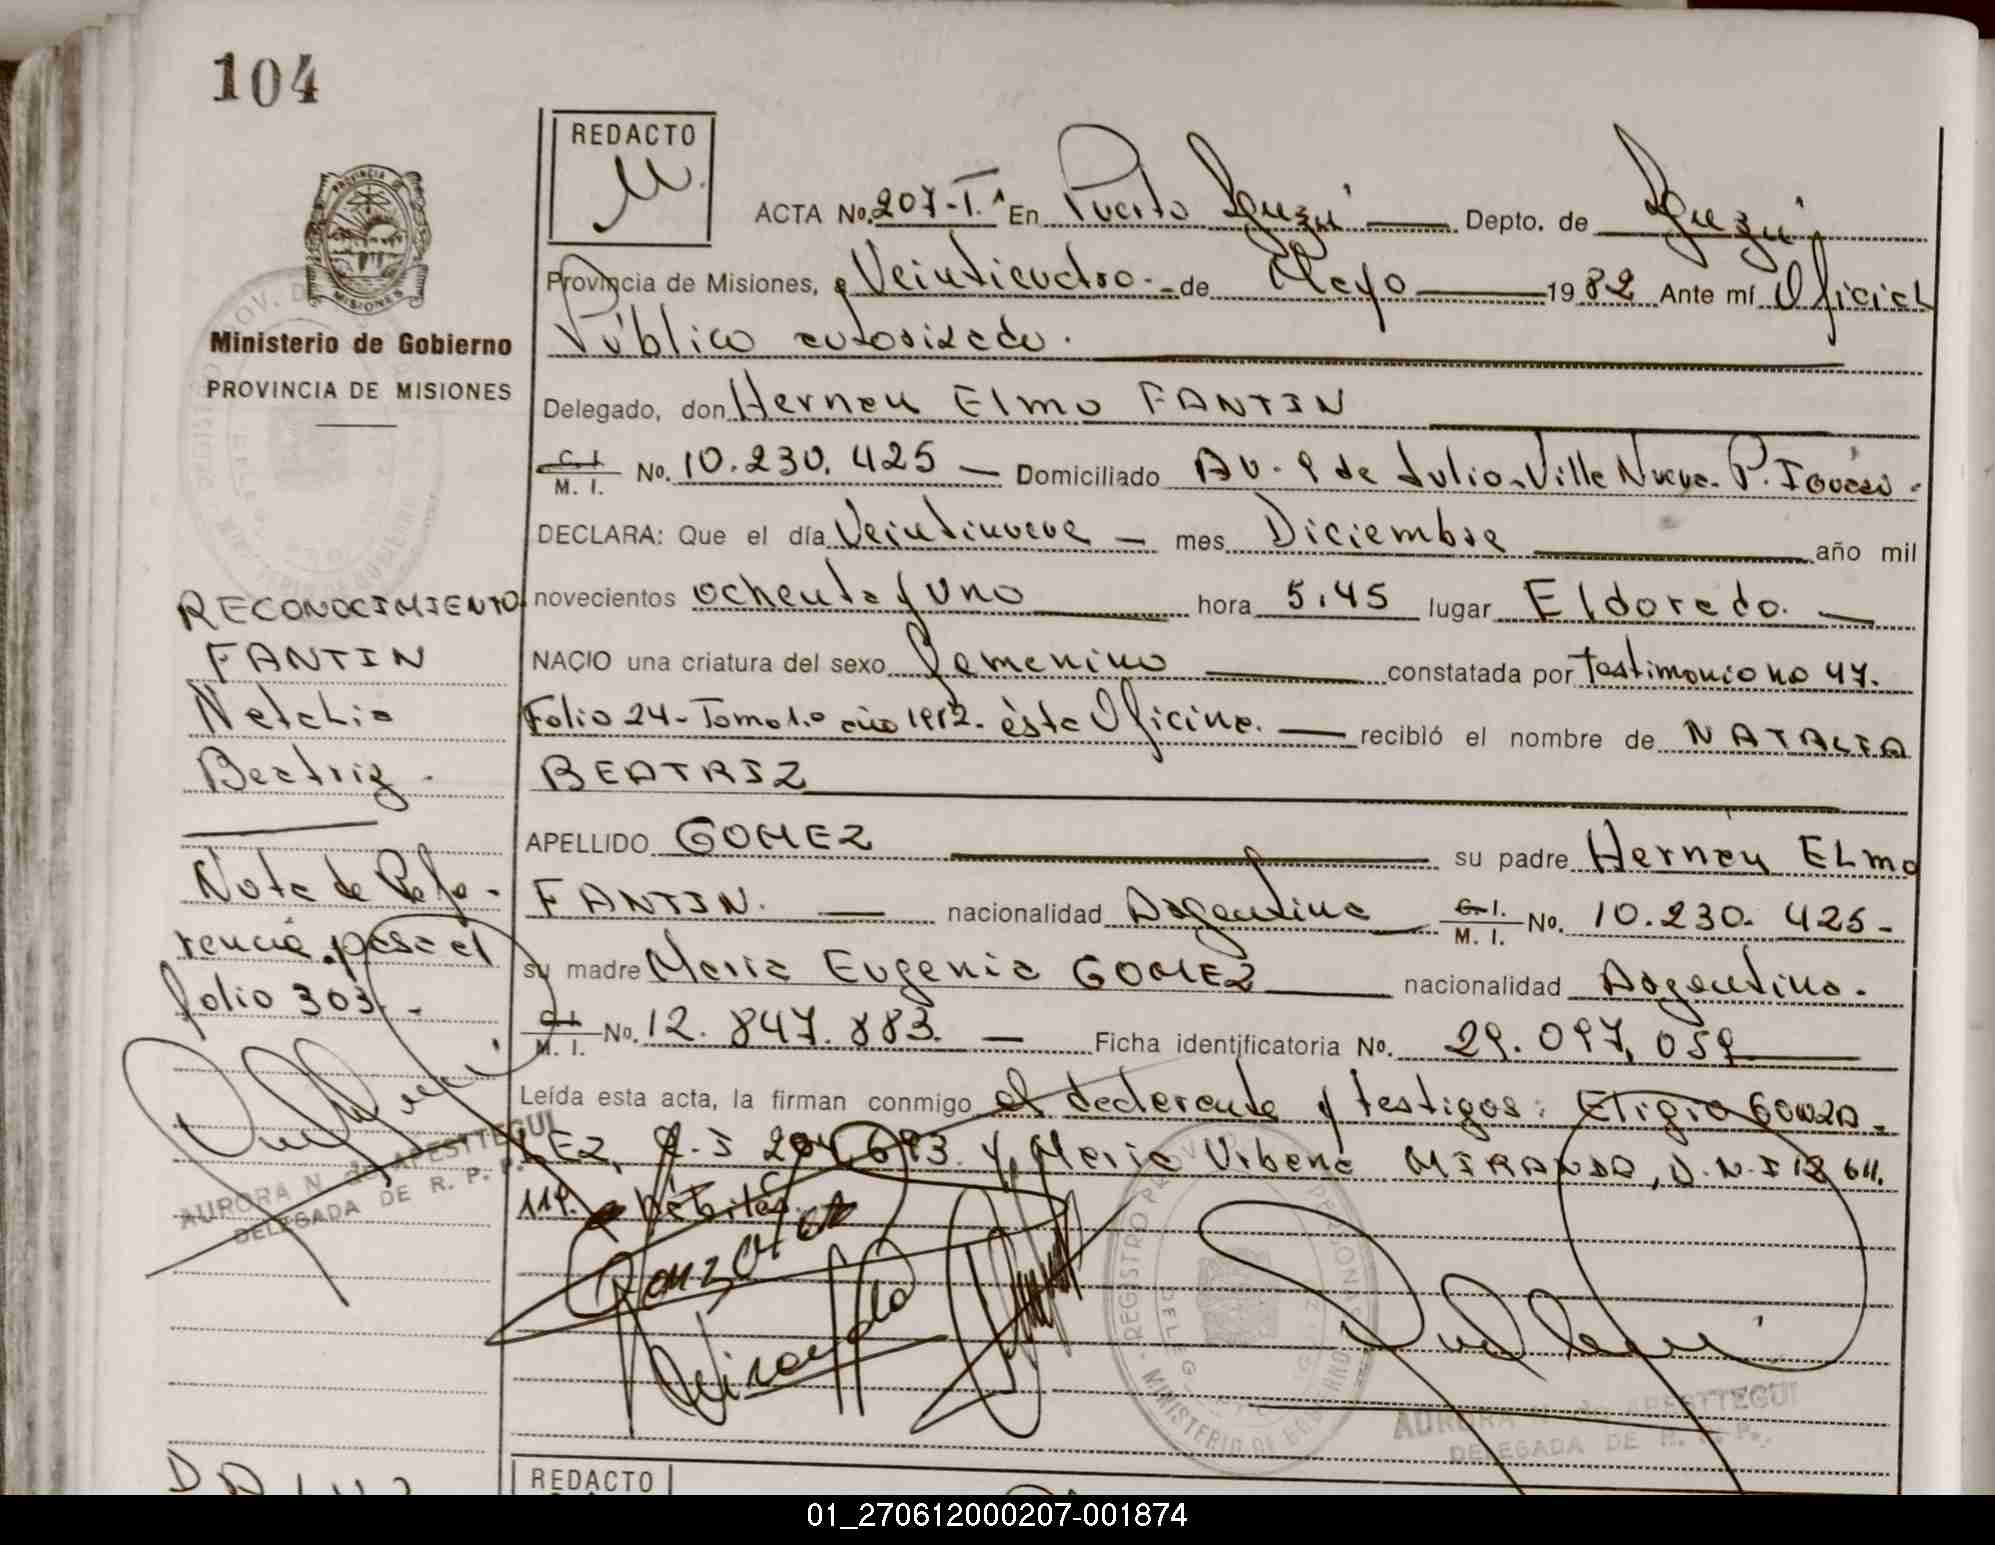 104
REDACTO
ACTA No. 207-T.ª En Puerto Iguazú Depto. de Iguazú
Provincia de Misiones, a Veinticuatro - de Mayo 1982 Ante mí Oficial
Público autorizado.
Delegado, don Hernan Elmo FANTIN
C. I. M. I. No. 10.230.425 - Domiciliado Av. 9 de Julio - Villa Nueva - P. Iguazú.
DECLARA: Que el día Veintinueve - mes Diciembre año mil
novecientos ochenta y uno hora 5.45 lugar Eldorado. -
NACIO una criatura del sexo femenino constatada por Testimonio no 47.
Folio 24 - Tomo 1.º año 1982 - ésta Oficina. - recibió el nombre de NATALIA
BEATRIZ
APELLIDO GOMEZ su padre Hernan ELmo
FANTIN. - nacionalidad Argentina C. I. M. I. No. 10.230.425 -
su madre Maria Eugenia GOMEZ nacionalidad Argentina.
C. I. M. I. No. 12.847.883. - Ficha identificatoria No. 29.097.059
Leída esta acta, la firman conmigo el declarante y testigos: Eligio GONZA-
LEZ, y Maria Urbana MIRANDA, D.N.I 12 611.
119.
Gonzalez
Miranda
MINISTERIO DE GOBIERNO
AURORA N. de APESTTEGUI
DELEGADA DE R. P. P.
PROVINCIA DE MISIONES
Ministerio de Gobierno
PROVINCIA DE MISIONES
RECONOCIMIENTO
FANTIN
Natalia
Beatriz.
Nota de Refe-
rencia pasa al
folio 303. -
AURORA N de APESTTEGUI
DELEGADA DE R. P. P.
REDACTO
01_270612000207-001874